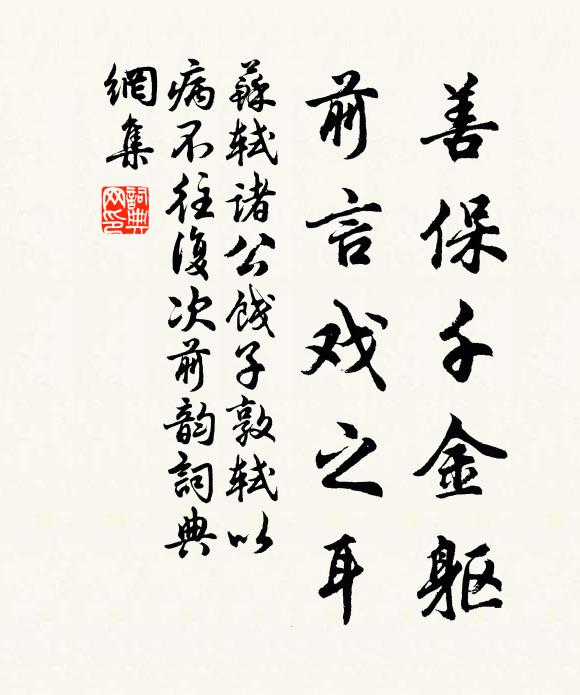 善保千金躯
前言戏之耳
蘇轼诸公餞子敦轼以
病不往復次前韵詞典
網集
詞典网印